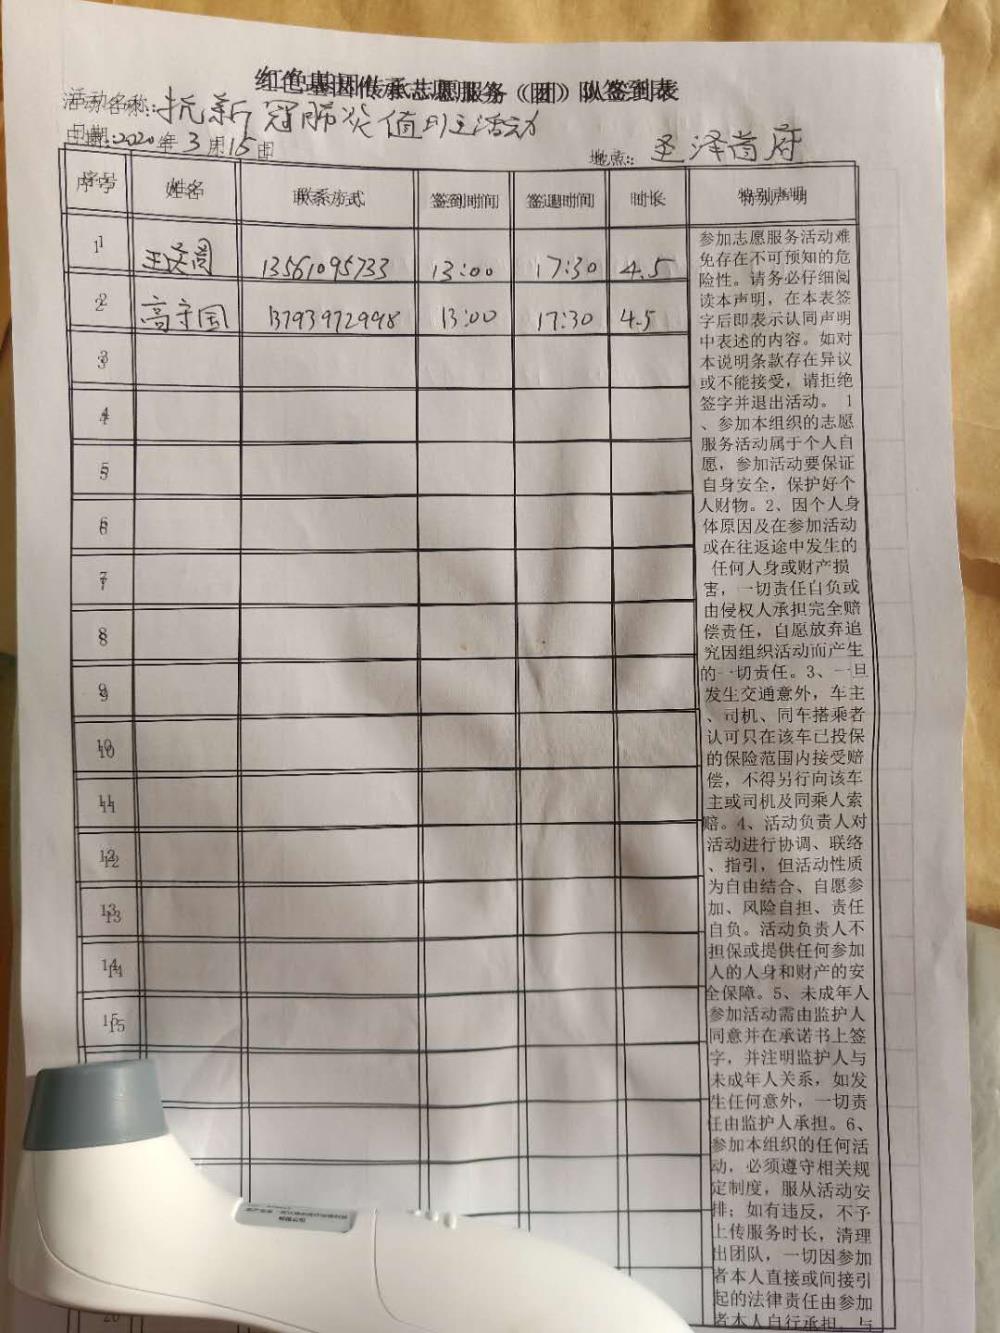 红色基因传承志愿服务（团）队签到表
活动名称：抗新冠肺炎值班活动
日期：2020年3月15日 地点：圣泽首府
序号 姓名 联系方式 签到时间 签退时间 时长 特别声明
1 13561095733 13:00 17:30 4.5
2 高守国 13793972998 13:00 17:30 4.5
3
4
5
6
7
8
9
10
11
12
13
14
15
20
参加志愿服务活动难
免存在不可预知的危
险性。请务必仔细阅
读本声明，在本表签
字后即表示认同声明
中表述的内容。如对
本说明条款存在异议
或不能接受，请拒绝
签字并退出活动。 1
、参加本组织的志愿
服务活动属于个人自
愿，参加活动要保证
自身安全，保护好个
人财物。2、因个人身
体原因及在参加活动
或在往返途中发生的
任何人身或财产损
害，一切责任自负或
由侵权人承担完全赔
偿责任，自愿放弃追
究因组织活动而产生
的一切责任。3、一旦
发生交通意外，车主
、司机、同车搭乘者
认可只在该车已投保
的保险范围内接受赔
偿，不得另行向该车
主或司机及同乘人索
赔。4、活动负责人对
活动进行协调、联络
、指引，但活动性质
为自由结合、自愿参
加、风险自担、责任
自负。活动负责人不
担保或提供任何参加
人的人身和财产的安
全保障。5、未成年人
参加活动需由监护人
同意并在承诺书上签
字，并注明监护人与
未成年人关系，如发
生任何意外，一切责
任由监护人承担。6、
参加本组织的任何活
动，必须遵守相关规
定制度，服从活动安
排；如有违反，不予
上传服务时长，清理
出团队，一切因参加
者本人直接或间接引
起的法律责任由参加
者本人自行承担，与